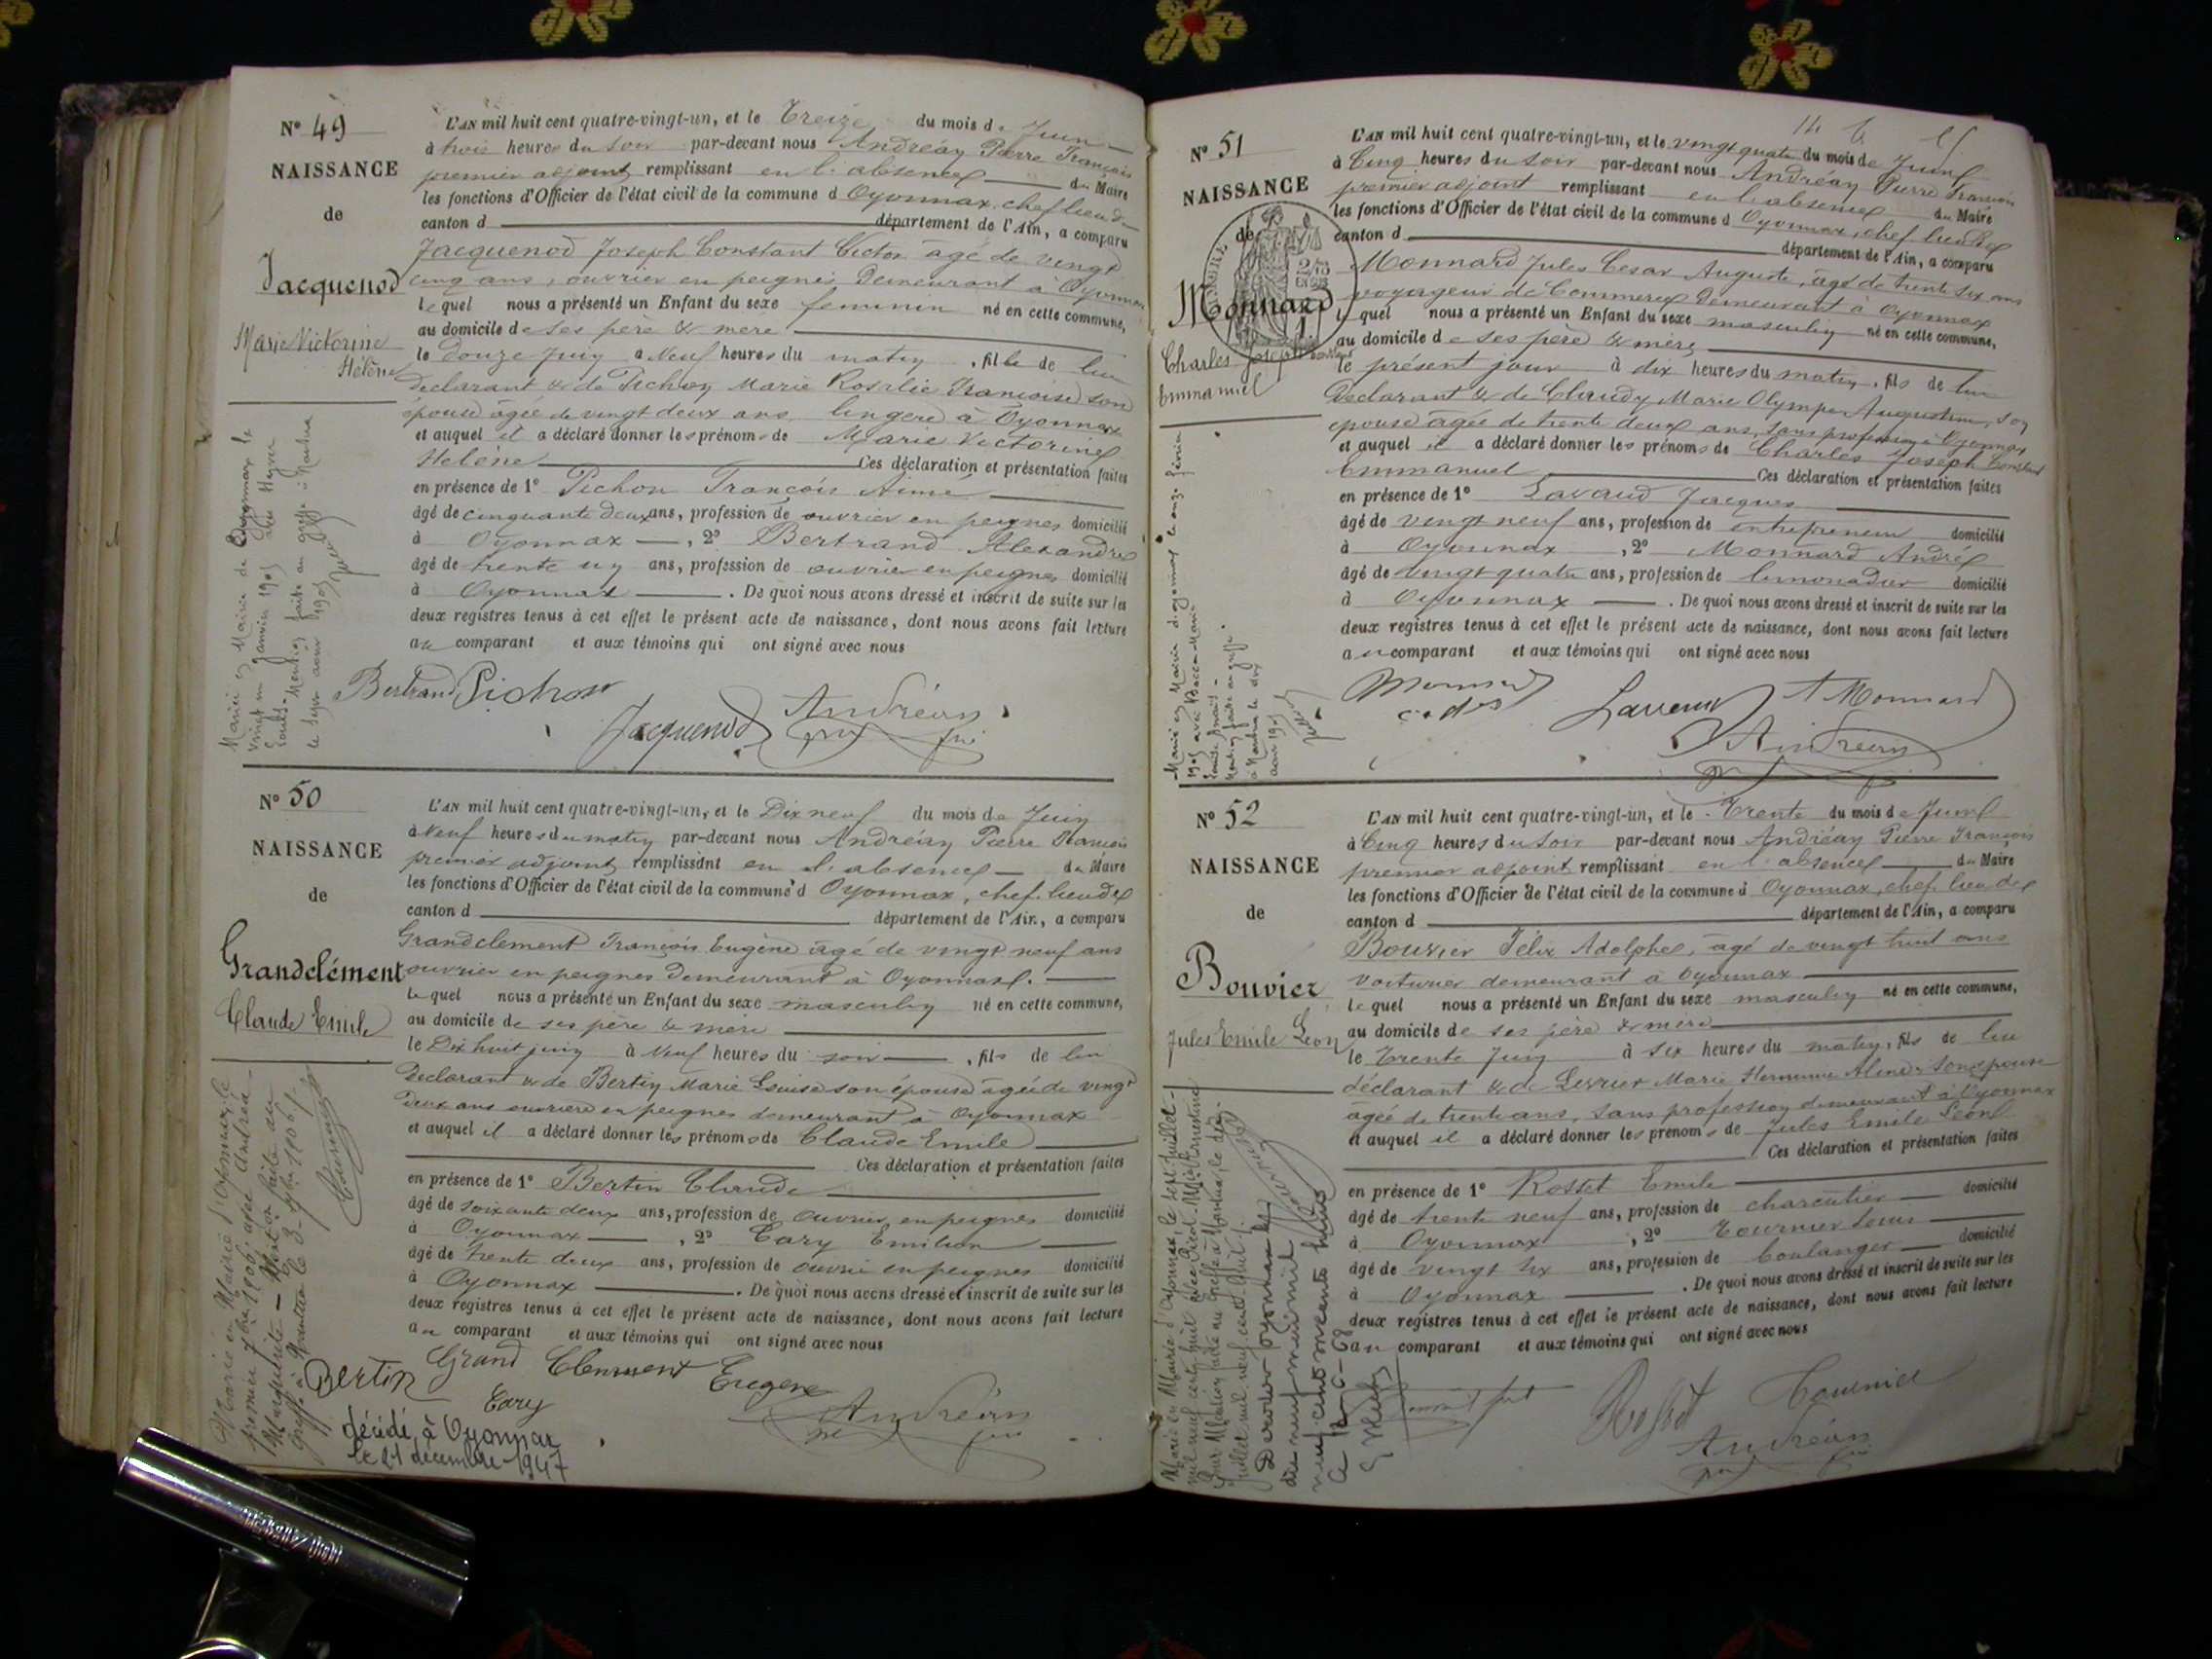 N° 49
NAISSANCE
de
Jacquenod
Marie Victorine
Hélène
L'AN mil huit cent quatre-vingt-un, et le Treize du mois de Juin
à trois heures du soir par-devant nous Andréan Pierre François
premier adjoint remplissant en l'absence du Maire
les fonctions d'Officier de l'état civil de la commune d Oyonnax, chef lieu de
canton d département de l'Ain, a comparu
Jacquenod Joseph Constant Victor âgé de vingt
cinq ans, ouvrier en peignes demeurant à Oyonnax
lequel nous a présenté un Enfant du sexe feminin né en cette commune,
au domicile de ses père & mère
le douze Juin à Neuf heures du matin, fille de lui
déclarant & de Pichon Marie Rosalie Françoise son
épouse âgée de vingt deux ans lingère à Oyonnax
et auquel il a déclaré donner les prénoms de Marie Victorine
Helène Ces déclaration et présentation faites
en présence de 1° Pichon François Aimé
âgé de cinquante deux ans, profession de ouvrier en peignes domicilié
à Oyonnax, 2° Bertrand Alexandre
âgé de trente un ans, profession de ouvrier en peignes domicilié
à Oyonnax. De quoi nous avons dressé et inscrit de suite sur les
deux registres tenus à cet effet le présent acte de naissance, dont nous avons fait lecture
au comparant et aux témoins qui ont signé avec nous
Bertrand Pichon
Jacquenod Andréan
Mariée en Mairie de Oyonnax le
vingt un janvier 1905
Mention faite au greffe à Nantua
N° 50
NAISSANCE
de
Grandclément
Claude Emile
L'AN mil huit cent quatre-vingt-un, et le Dix neuf du mois de Juin
à Neuf heures du matin par-devant nous Andréan Pierre François
premier adjoint remplissant en l'absence du Maire
les fonctions d'Officier de l'état civil de la commune d Oyonnax, chef lieu de
canton d département de l'Ain, a comparu
Grandclement François Eugène âgé de vingt neuf ans
ouvrier en peignes demeurant à Oyonnax.
lequel nous a présenté un Enfant du sexe masculin né en cette commune,
au domicile de ses père & mère
le Dix huit juin à Neuf heures du soir, fils de lui
Déclarant & de Bertin Marie Louise son épouse âgée de vingt
deux ans ouvrière en peignes demeurant à Oyonnax
et auquel il a déclaré donner les prénoms de Claude Emile
Ces déclaration et présentation faites
en présence de 1° Bertin Claude
âgé de soixante deux ans, profession de ouvrier en peignes domicilié
à Oyonnax, 2° Cary Emilien
âgé de trente deux ans, profession de ouvrier en peignes domicilié
à Oyonnax. De quoi nous avons dressé et inscrit de suite sur les
deux registres tenus à cet effet le présent acte de naissance, dont nous avons fait lecture
au comparant et aux témoins qui ont signé avec nous
Bertin Grand Clement Eugene
Cary Andréan
décédé à Oyonnax
le 21 décembre 1947
N° 51
NAISSANCE
de
Monnard
Charles Joseph
Emmanuel
L'AN mil huit cent quatre-vingt-un, et le vingt quatre du mois de Juin
à Cinq heures du soir par-devant nous Andréan Pierre François
premier adjoint remplissant en l'absence du Maire
les fonctions d'Officier de l'état civil de la commune d Oyonnax, chef lieu de
canton d département de l'Ain, a comparu
Monnard Jules Cesar Auguste, âgé de trente six ans
voyageur de Commerce demeurant à Oyonnax
lequel nous a présenté un Enfant du sexe masculin né en cette commune,
au domicile de ses père & mère
le présent jour à dix heures du matin, fils de lui
Déclarant & de Claudy Marie Olympe Augustine, son
épouse âgée de trente deux ans, sans profession à Oyonnax
et auquel il a déclaré donner les prénoms de Charles Joseph Constant
Emmanuel Ces déclaration et présentation faites
en présence de 1° Lavaud Jacques
âgé de vingt neuf ans, profession de entrepreneur domicilié
à Oyonnax, 2° Monnard André
âgé de vingt quatre ans, profession de limonadier domicilié
à Oyonnax. De quoi nous avons dressé et inscrit de suite sur les
deux registres tenus à cet effet le présent acte de naissance, dont nous avons fait lecture
au comparant et aux témoins qui ont signé avec nous
A Monnard
Andréan
N° 52
NAISSANCE
de
Bouvier
Jules Emile Léon
L'AN mil huit cent quatre-vingt-un, et le Trente du mois de Juin
à Cinq heures du soir par-devant nous Andréan Pierre François
premier adjoint remplissant en l'absence du Maire
les fonctions d'Officier de l'état civil de la commune d Oyonnax, chef lieu de
canton d département de l'Ain, a comparu
Bouvier Félix Adolphe, âgé de vingt huit ans
voiturier demeurant à Oyonnax
lequel nous a présenté un Enfant du sexe masculin né en cette commune,
au domicile de ses père & mère
le Trente Juin à six heures du matin, fils de lui
déclarant & de Marie Aline son épouse
âgée de trente ans, sans profession demeurant à Oyonnax
et auquel il a déclaré donner les prénoms de Jules Emile Léon
Ces déclaration et présentation faites
en présence de 1° Rosset Emile
âgé de trente neuf ans, profession de charcutier domicilié
à Oyonnax, 2° Tournier Louis
âgé de vingt six ans, profession de boulanger domicilié
à Oyonnax. De quoi nous avons dressé et inscrit de suite sur les
deux registres tenus à cet effet le présent acte de naissance, dont nous avons fait lecture
au comparant et aux témoins qui ont signé avec nous
Rosset Tournier
Andréan